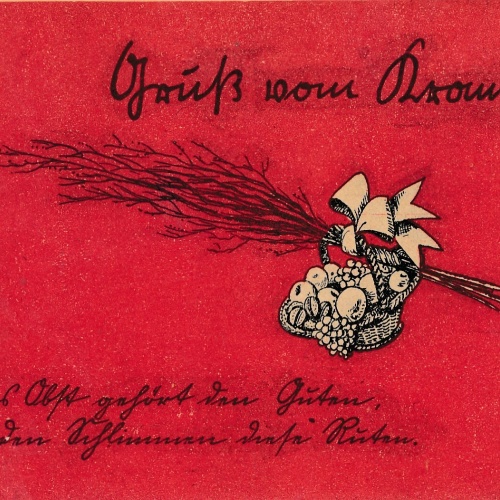 Gruß vom Kram
s Obst gehört den Guten,
den Schlimmen diese Ruten.